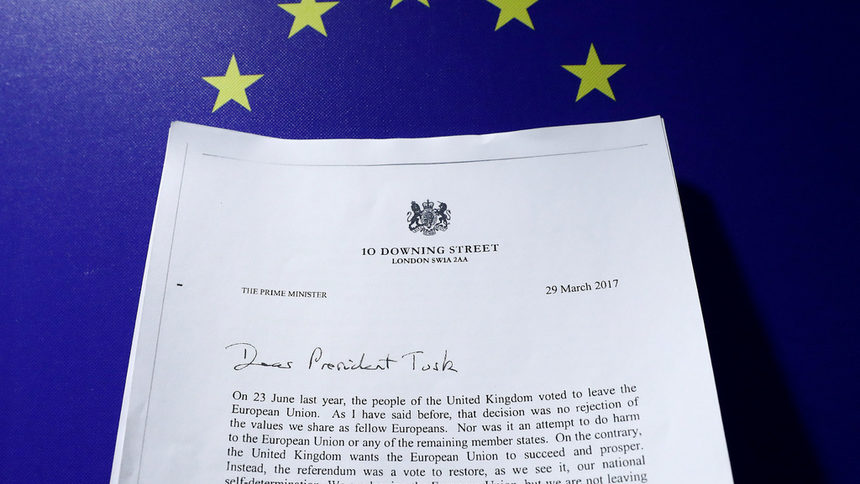 10 DOWNING STREET
LONDON SW1A 2AA
THE PRIME MINISTER
29 March 2017
Dear President Tusk
On 23 June last year, the people of the United Kingdom voted to leave the
European Union. As I have said before, that decision was no rejection of
the values we share as fellow Europeans. Nor was it an attempt to do harm
to the European Union or any of the remaining member states. On the contrary,
the United Kingdom wants the European Union to succeed and prosper.
Instead, the referendum was a vote to restore, as we see it, our national
self-determination. We are leaving the European Union, but we are not leaving